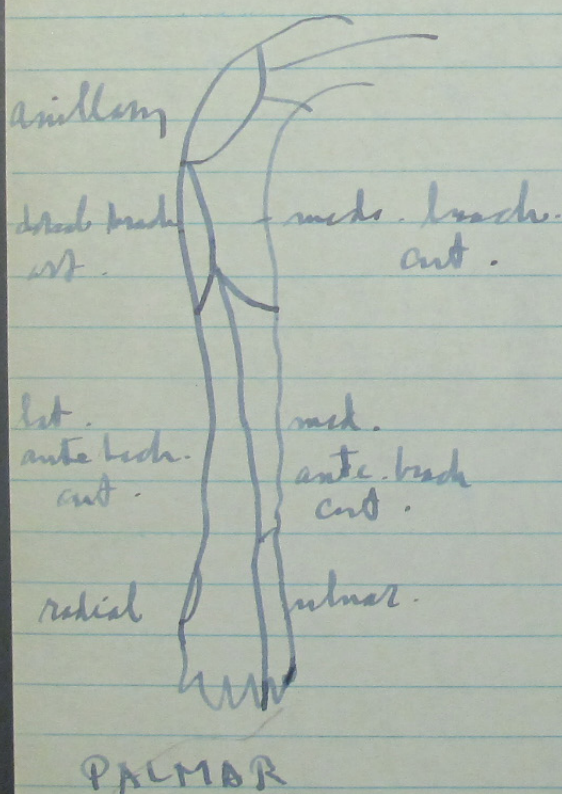 axillary
dorsal brach
cut.
med. brach.
cut.
lat.
ante brach.
cut.
med.
ante. brach
cut.
radial
ulnar.
PALMAR